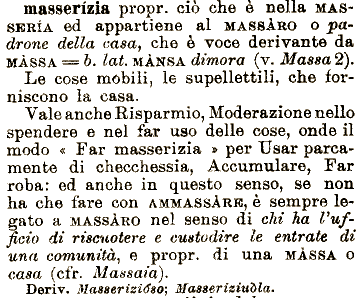 masserízia propr. ciò che è nella MAS-
SERÍA ed appartiene al MASSÀRO o pa-
drone della casa, che è voce derivante da
MÀSSA = b. lat. MÀNSA dimora (v. Massa 2).
Le cose mobili, le supellettili, che for-
niscono la casa.
Vale anche Risparmio, Moderazione nello
spendere e nel far uso delle cose, onde il
modo « Far masserizia » per Usar parca-
mente di checchessia, Accumulare, Far
roba: ed anche in questo senso, se non
ha che fare con AMMASSÀRE, è sempre le-
gato a MASSÀRO nel senso di chi ha l'uf-
ficio di riscuotere e custodire le entrate di
una comunità, e propr. di una MÀSSA o
casa (cfr. Massaia).
Deriv. Masserizióso; Masseriziuòla.